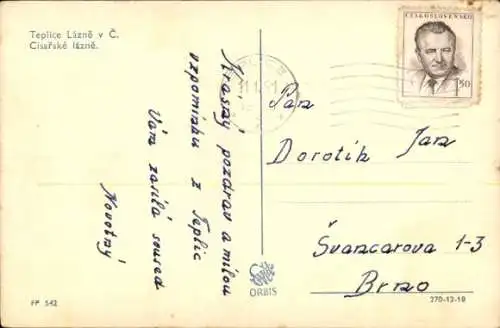 Teplice Lázně v Č.
Císařské lázně.
ČESKOSLOVENSKO
1.50
Krásný pozdrav a milou
vzpomínku z Teplic
Vám zasílá soused
Novotný
Pan
Dorotík Jan
Švancarova 1-3
Brno
ORBIS
FP 542
270-12-10